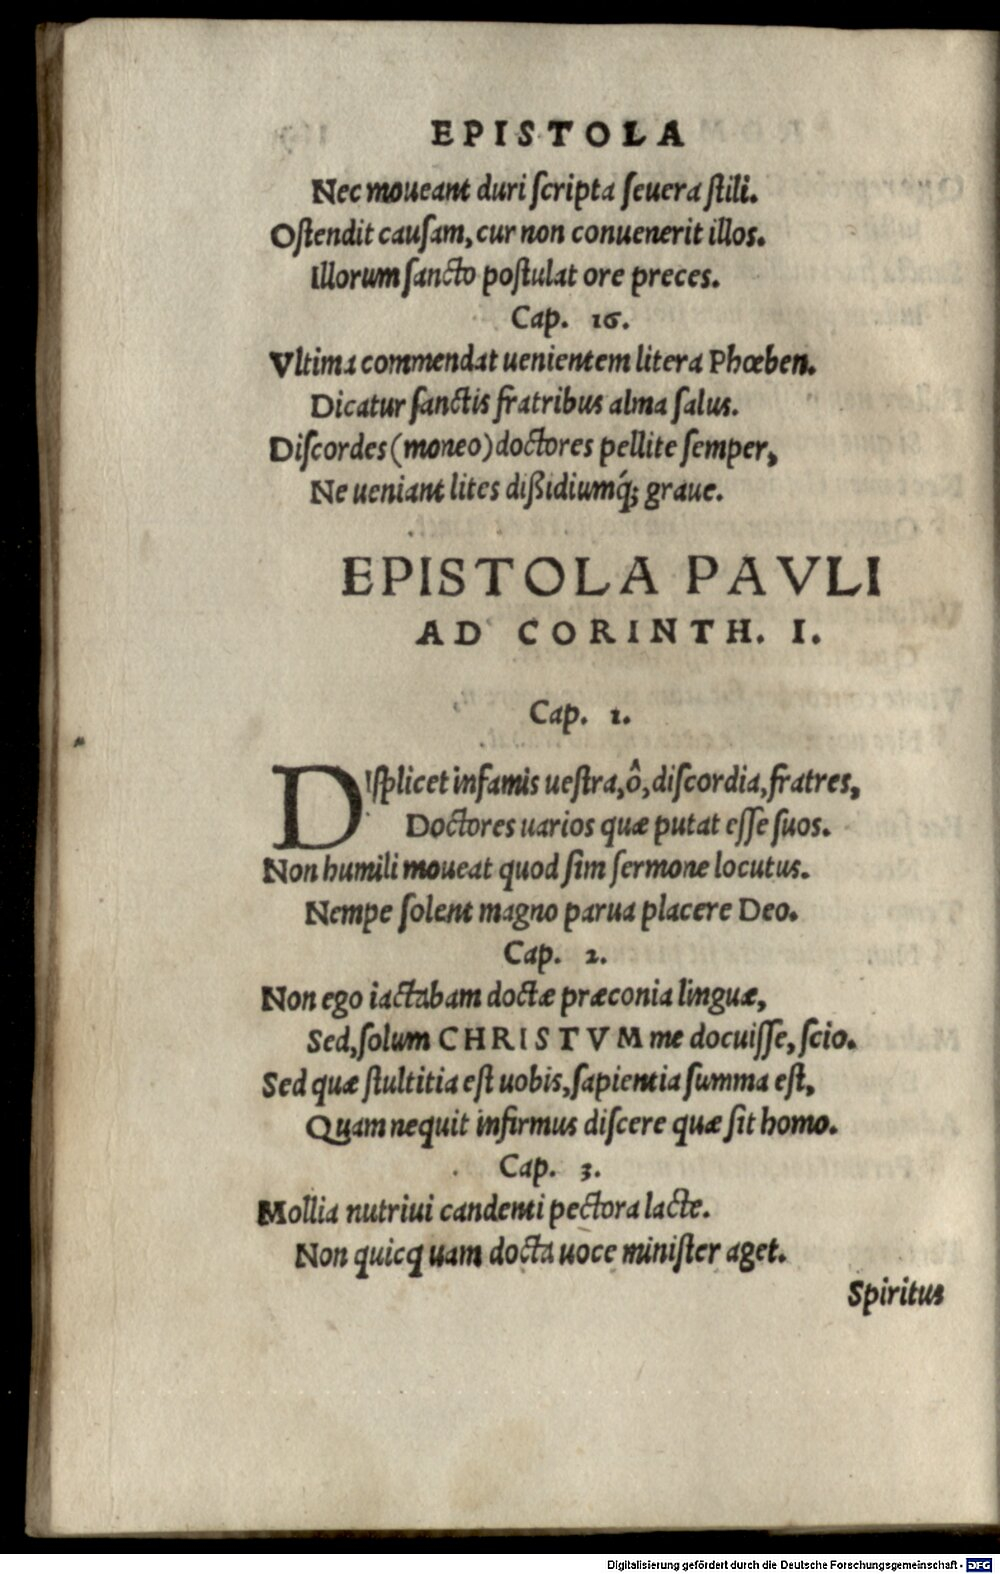 EPISTOLA
Nec moueant duri ſcripta ſeuera ſtili.
Oſtendit cauſam, cur non conuenerit illos.
Illorum ſancto poſtulat ore preces.
Cap. 16.
Vltima commendat uenientem litera Phœben.
Dicatur ſanctis fratribus alma ſalus.
Diſcordes (moneo) doctores pellite ſemper,
Ne ueniant lites dißidiumq́; graue.
EPISTOLA PAVLI
AD CORINTH. I.
Cap. 1.
DIſplicet infamis ueſtra, ô, diſcordia, fratres,
Doctores uarios quæ putat eſſe ſuos.
Non humili moueat quod ſim ſermone locutus.
Nempe ſolent magno parua placere Deo.
Cap. 2.
Non ego iactabam doctæ præconia linguæ,
Sed, ſolum CHRISTVM me docuiſſe, ſcio.
Sed quæ ſtultitia eſt uobis, ſapientia ſumma eſt,
Quam nequit infirmus diſcere quæ ſit homo.
Cap. 3.
Mollia nutriui candenti pectora lacte.
Non quicquam docta uoce miniſter aget.
Spiritus
Digitalisierung gefördert durch die Deutsche Forschungsgemeinschaft - DFG